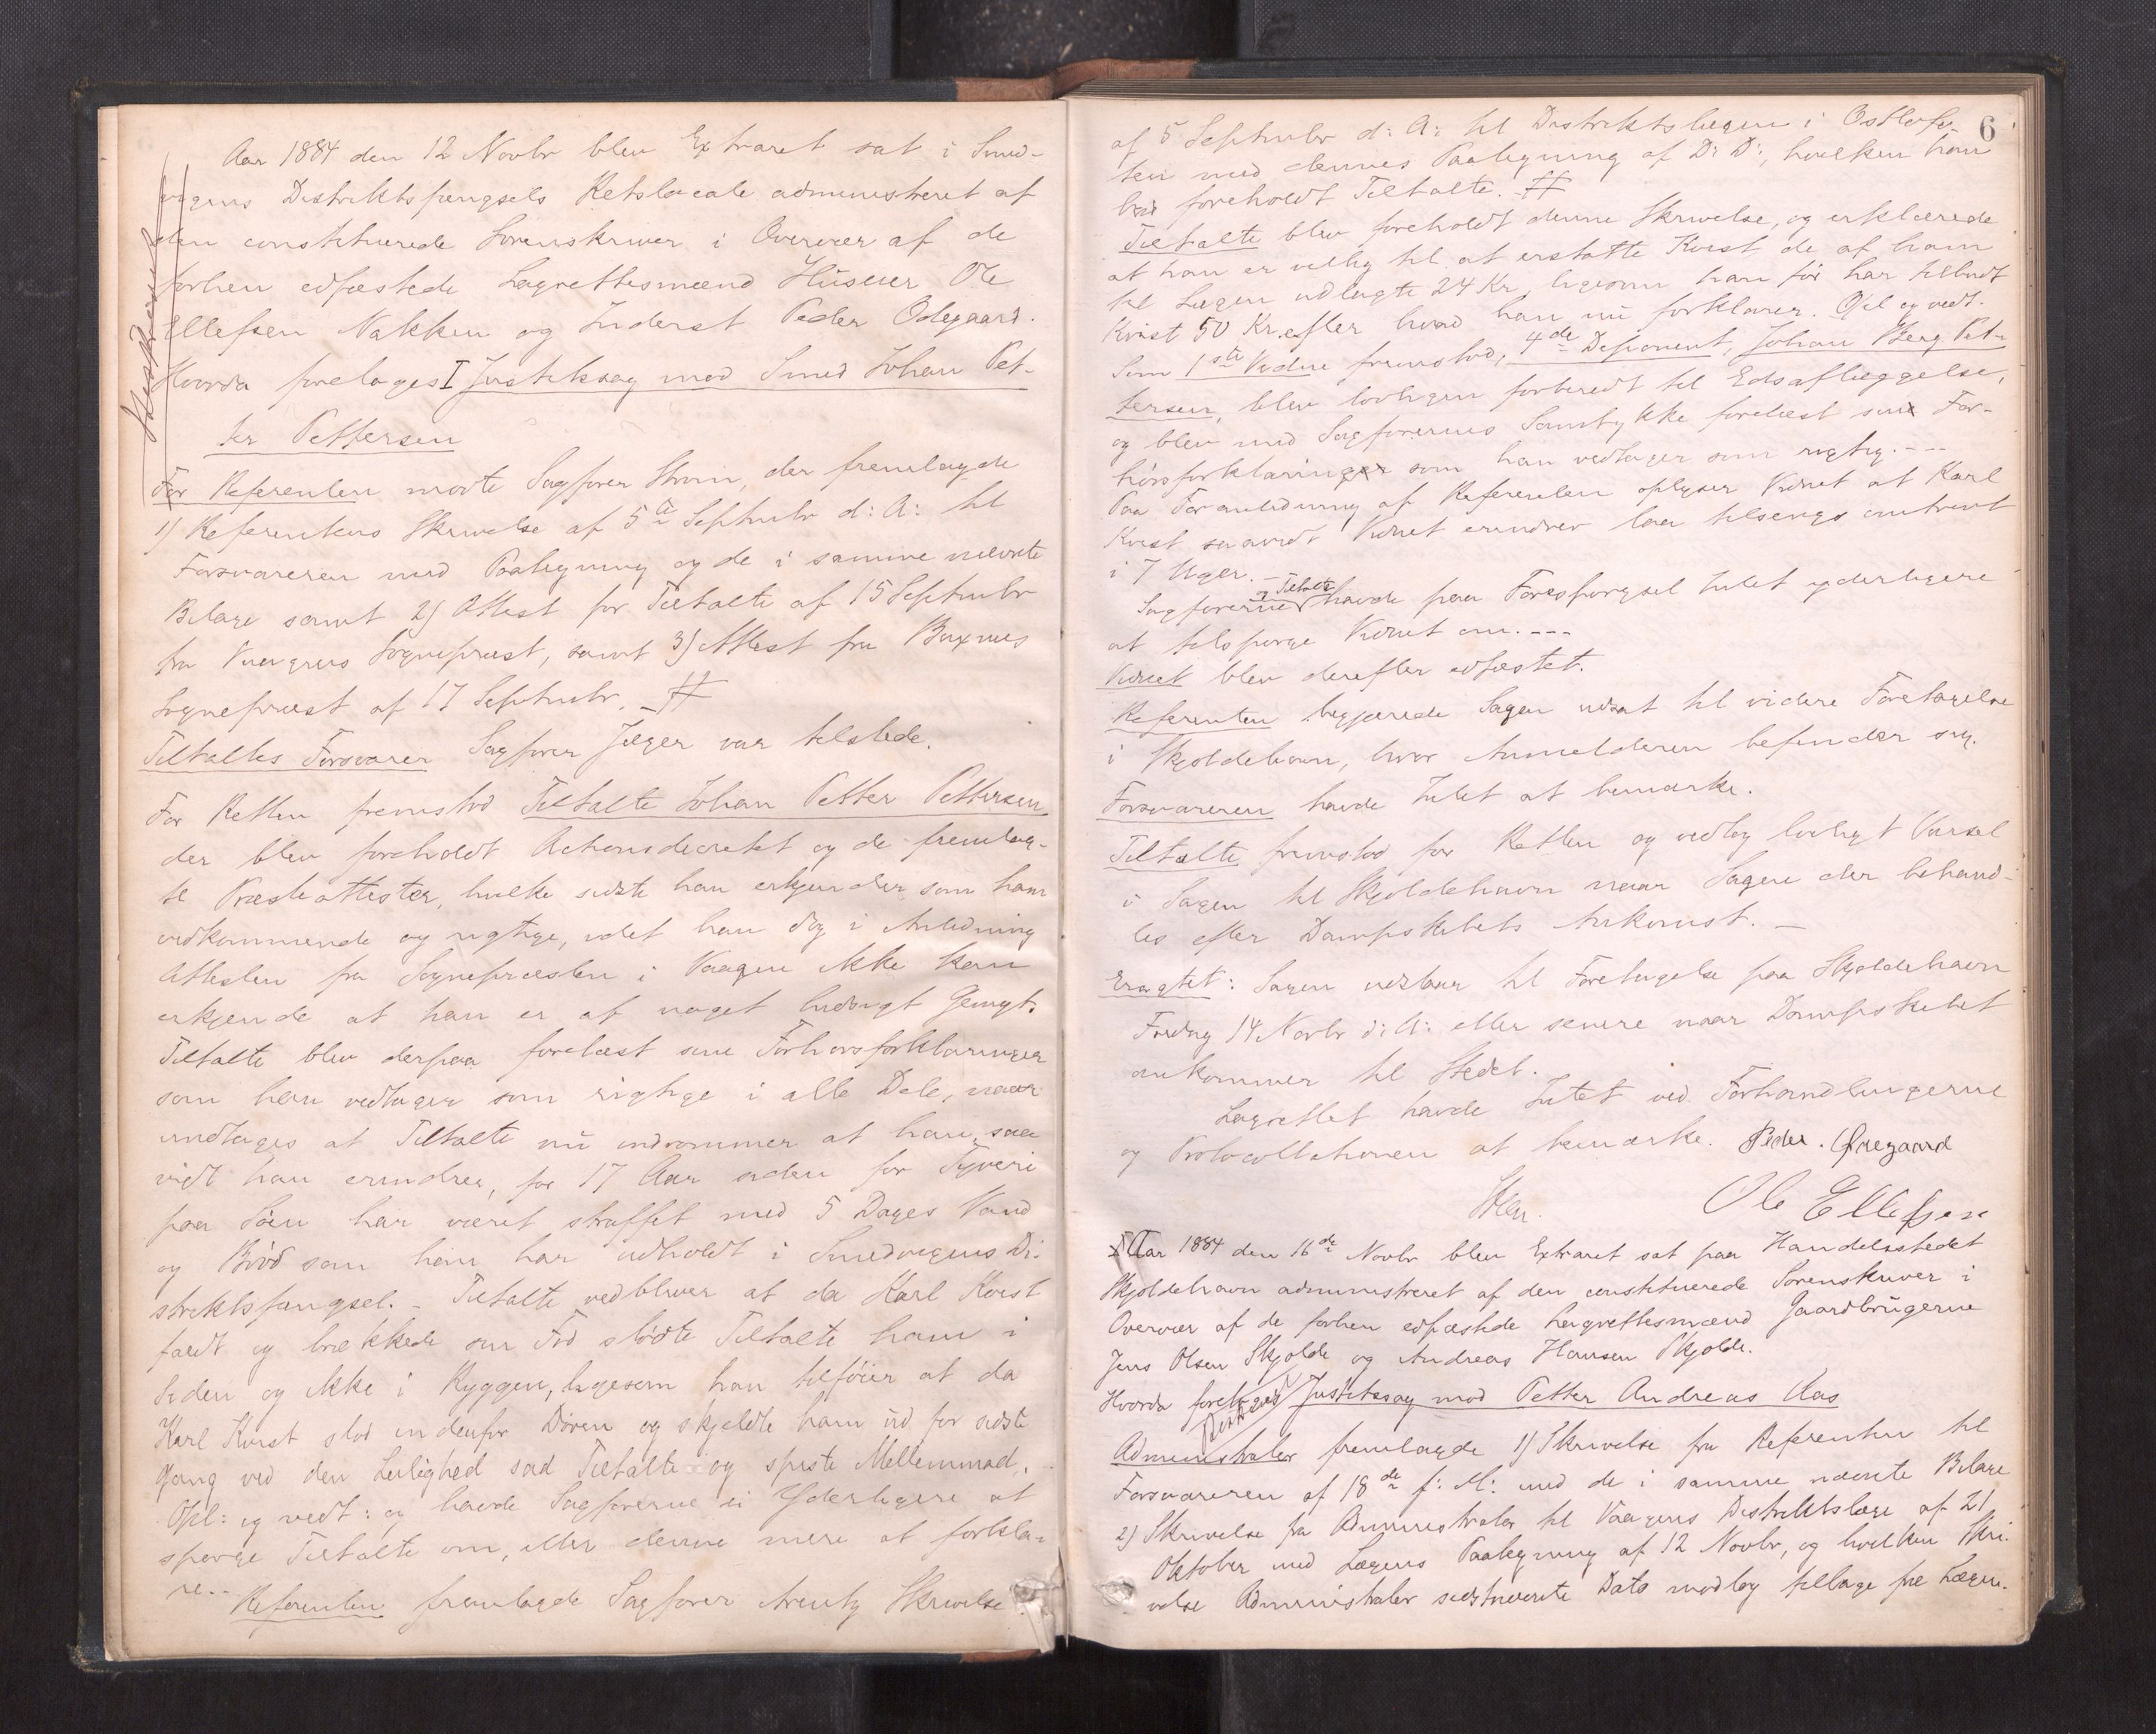 Aar 1884 den 12 Novbr blev Extraret sat i Smed-
vigens Distriktsfængsels Retslocale administreret af
den constituerede Sorenskriver i Overvær af de
forhen edfæstede Lagrettesmænd Husmer Ole
Ellefsen Nakken og Inderst Peder Ødegaard.
Hvorda foretoges I Justitssag mod Smed Johan Pet-
ter Pettersen
For Referenten mødte Sagfører Strøm, der fremlagde
1) Referentens Skrivelse af 5te Septmbr d: A: til
Forsvareren med Paategning og de i samme nævnte
Bilage samt 2) Attest for Tiltalte af 15 Septmbr
fra Vaagens Sognepræst, samt 3) Attest fra Buxnes
Sognepræst af 17 Septmbr. #
Tiltaltes Forsvarer Sagfører Jæger var tilstede.
For Retten fremstod Tiltalte Johan Petter Pettersen
der blev foreholdt Actionsdecretet og de fremlag-
te Præsteattester, hvilke sidste han erkjender som ham
vedkommende og rigtige, idet han dog i Anledning
Attesten fra Sognepræsten i Vaagen ikke kan
erkjende at han er af noget hidsigt Gemyt.
Tiltalte blev derpaa forelæst sine Forhørsforklaringer
som han vedtager som rigtige i alle Dele, naar
undtages at Tiltalte nu indrømmer at han, saa
vidt han erindrer, for 17 Aar siden for Tyveri
paa Søen har været straffet med 5 Dages Vand
og Brød som han har udholdt i Smedvigens Di-
striktsfængsel. - Tiltalte vedbliver at da Karl Kvist
faldt og brækkede sin Fod stødte Tiltalte ham i
Siden og ikke i Ryggen, ligesom han tilføier at da
Karl Kvist stod indenfor Døren og skjeldte ham ud for sidste
Gang ved den Leilighed sad Tiltalte og spiste Mellemmad.
Opl: og vedt: og havde Sagførerne ei Yderligere at
spørge Tiltalte om, eller denne mere at forkla-
re.--
Referenten fremlagde Sagfører Arentz Skrivelse
6
af 5 Septmbr d: A: til Distriktslægen i Østlofo-
ten med dennes Paategning af D: D:, hvilken han
foreholdt Tiltalte. #
Tiltalte blev foreholdt denne Skrivelse, og erklærede
at han er villig til at erstatte Kvist de af ham
til Lægen udlagte 24 Kr, ligesom han før har tilbudt
Kvist 50 Kr. efter hvad han nu forklarer. Opl og vedt.
Som 1ste Vidne fremstod, 4de Deponent, Johan Berg Pet-
tersen, blev lovligen forberedt til Edsaflæggelse,
og blev med Sagførernes Samtykke forelæst sin For-
hørsforklaring som han vedtager som rigtig.---
Paa Foranledning af Referenten oplyser Vidnet at Karl
Kvist saavidt Vidnet erindrer laa tilsengs omtrent
i 7 Uger. -
Sagførerne og Tiltalte havde paa Forespørgsel Intet yderligere
at tilspørge Vidnet om.---
Vidnet blev derefter edfæstet.
Referenten begjærede Sagen udsat til videre Foretagelse
i Skjoldehavn, hvor Anmelderen befinder sig.
Forsvareren havde Intet at bemærke.
Tiltalte fremstod for Retten og vedtog lovligt Varsel
i Sagen til Skjoldehavn naar Sagen der behand-
les efter Dampskibets Ankomst. -
Eragtet: Sagen udstaar til Foretagelse paa Skjoldehavn
Fredag 14 Novbr d: A: eller senere naar Dampskibet
ankommer til Stedet.
Lagrettet havde Intet ved Forhandlingerne
og Protocollationen at bemærke. Peder. Ødegaard
Ole Ellefsen
Aar 1884 den 16de Novbr blev Extraret sat paa Handelsstedet
Skjoldehavn administreret af den constituerede Sorenskriver i
Overvær af de forhen edfæstede Lagrettesmænd Gaardbrugerne
Jens Olsen Skjolde og Andreas Hansen Skjolde.
Hvorda foretoges Justitssag mod Petter Andreas Aas
Administrator fremlagde 1) Skrivelse fra Referenten til
Forsvareren af 18de f: M: med de i samme nævnte Bilage
2) Skrivelse fra Administrator til Vaagens Distriktslæge af 21
Oktober med Lægens Paategning af 12 Novbr, og hvilken Skri-
velse Administrator sidstnævnte Dato modtog tilbage fra Lægen.